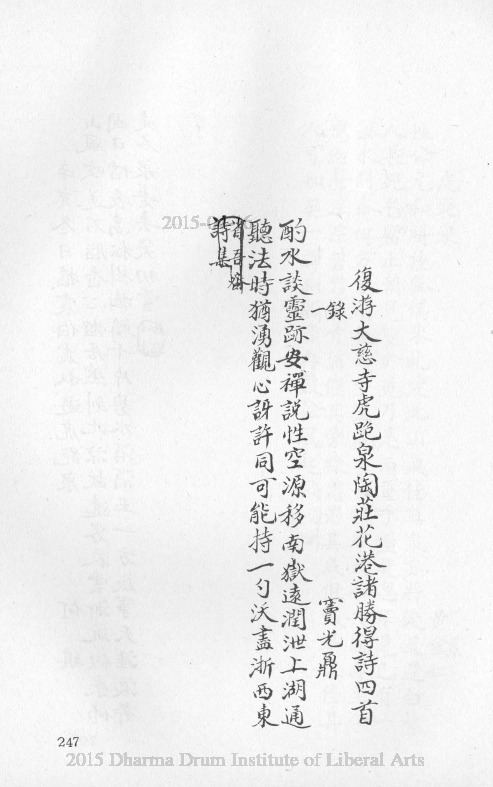 復游大慈寺虎跑泉陶莊花港諸勝得詩四首
錄一
竇光鼐
酌水談靈跡安禪説性空源移南嶽遠潤泄上湖通
聽法時猶湧觀心訝許同可能持一勺沃盡浙西東
省吾齋
詩集
247
2015 Dharma Drum Institute of Liberal Arts